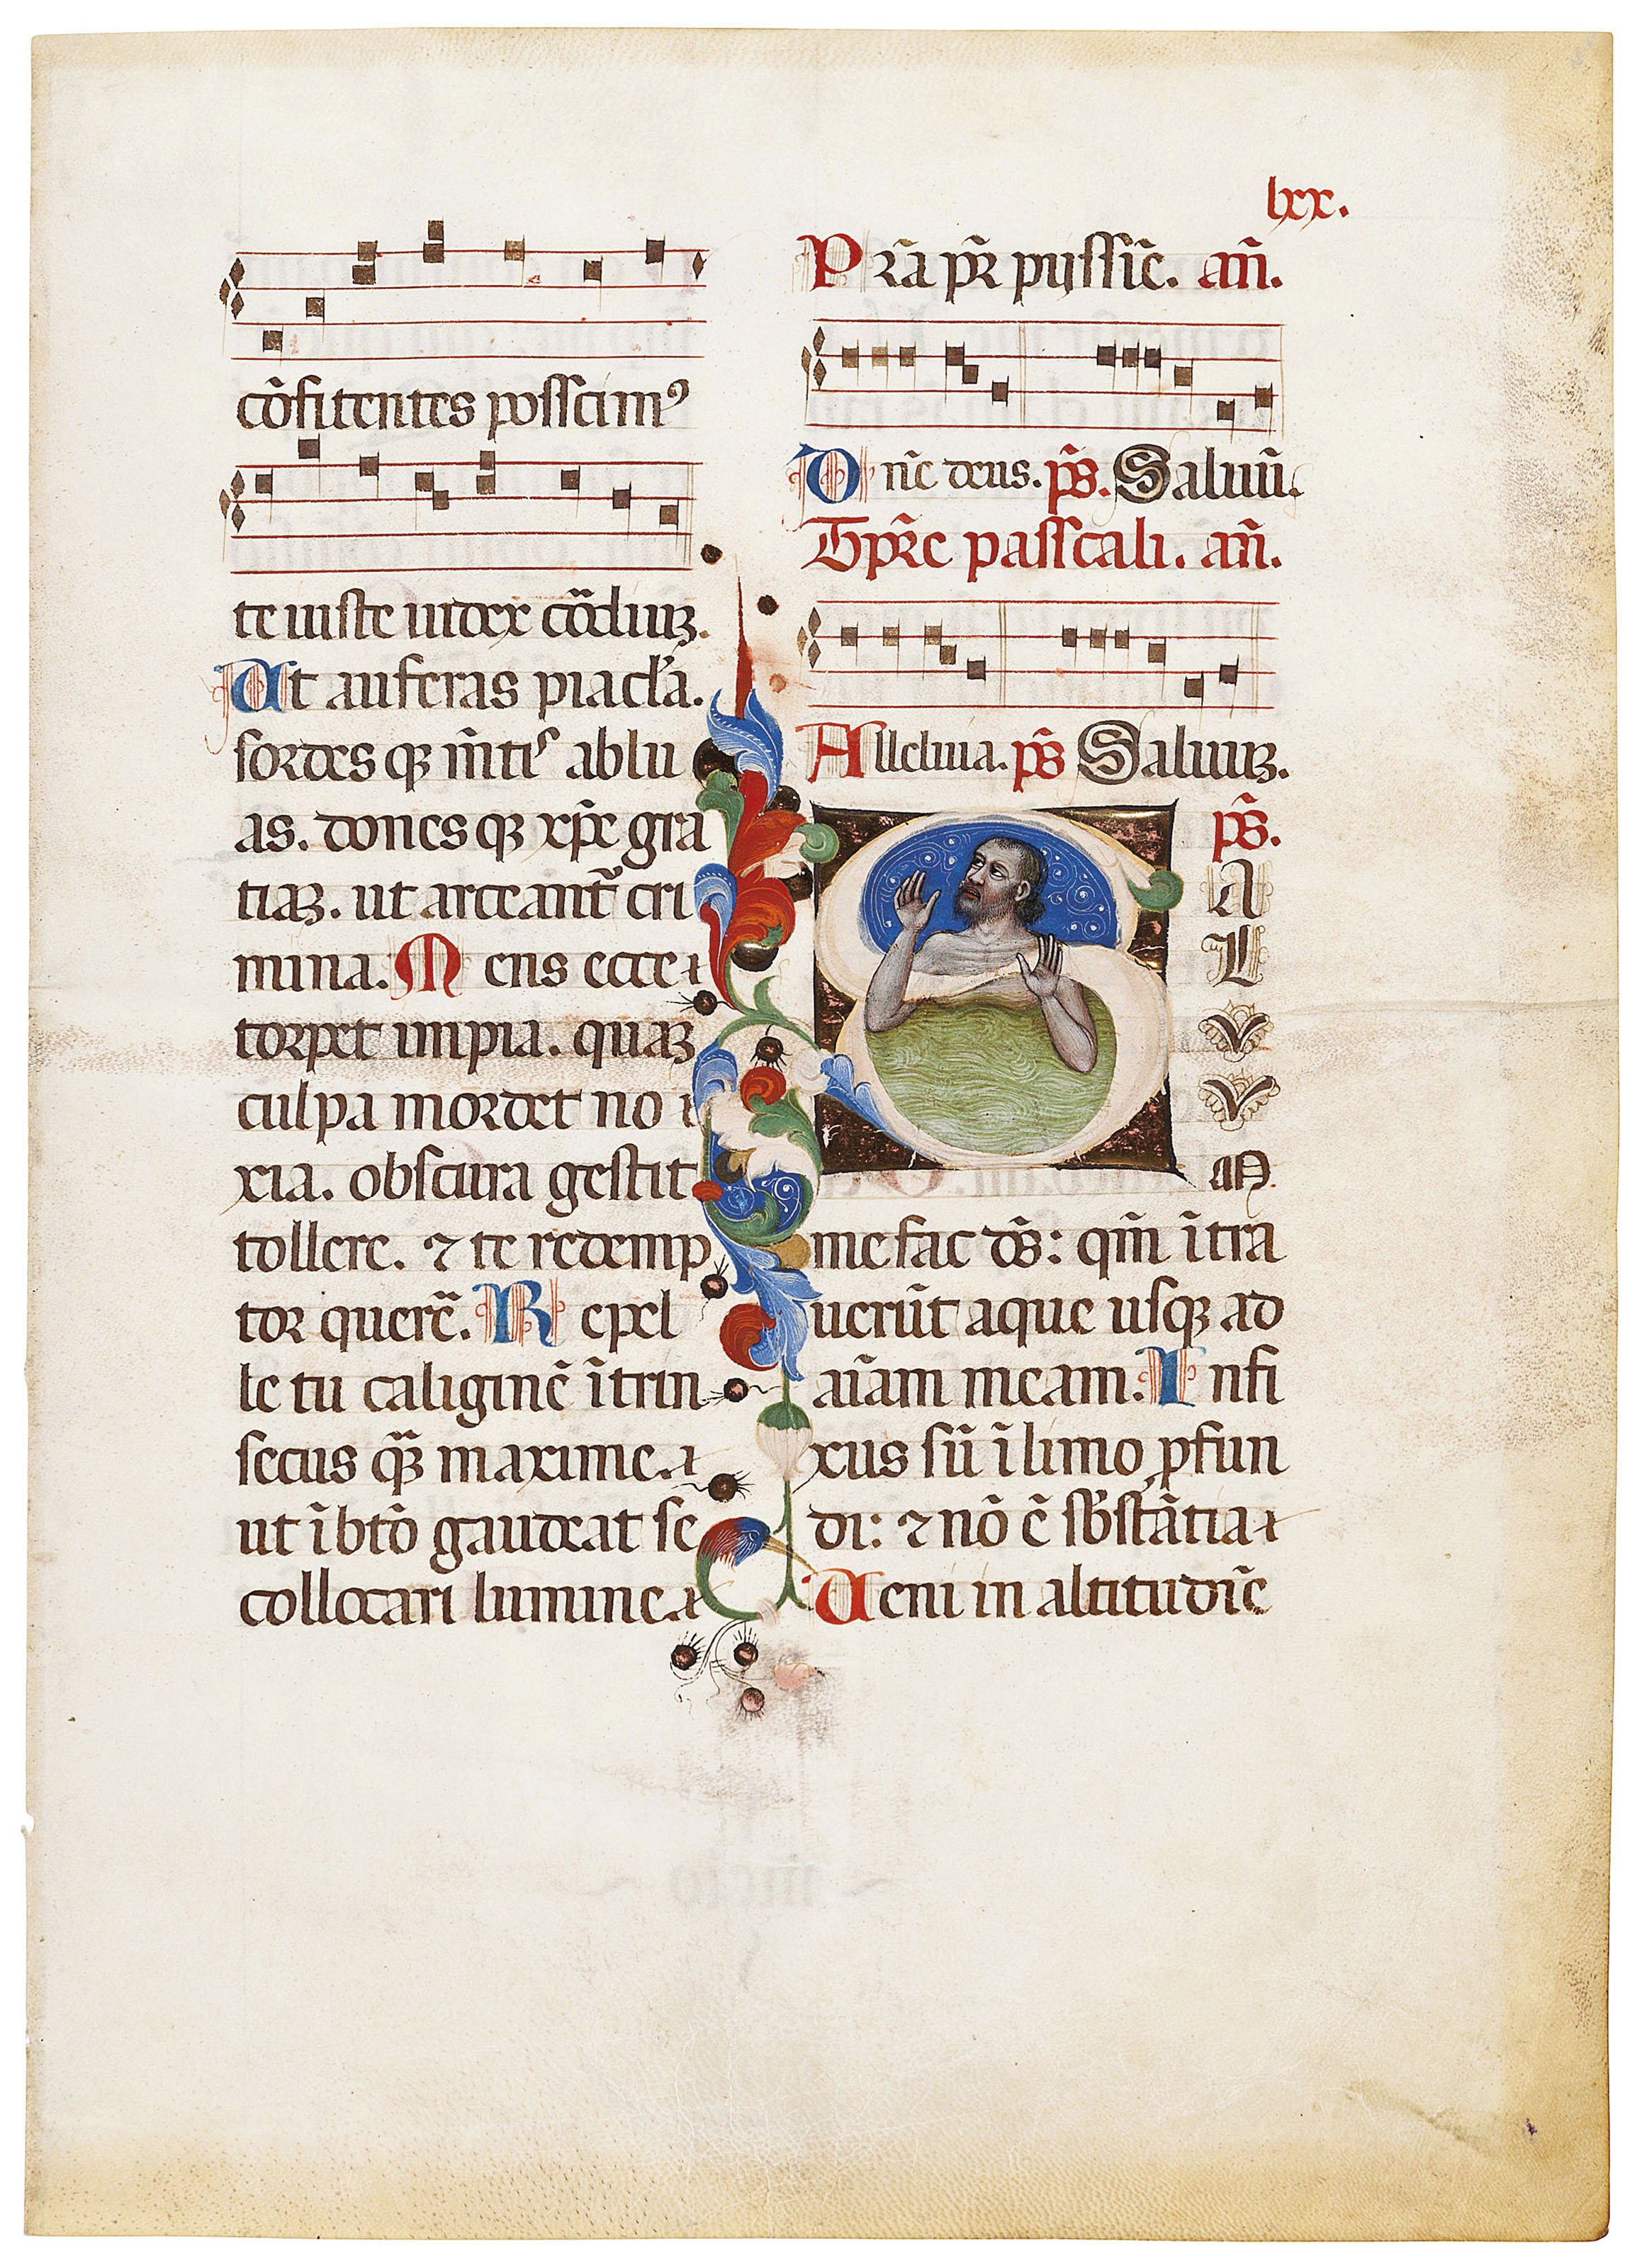 lxx.
cōfitentes possimꝰ
te iuste iudex cōdiuꝫ.
Ut auferas piacl'a.
sordes qꝫ m̄tis ablu
as. dones qꝫ xp̄e gra
tiaꝫ. ut arceant᷑ cri
mina. Mens ecce
torpet impia. quaꝫ
culpa mordet no
xia. obscura gestit
tollere. ⁊ te redemp
tor querē. Repel
le tu caliginē ītrin
secus qꝫ maxime.
ut ī btō gaudeat se
collocari lumine.
Prā pr̄ pyssīe. an̄.
Dn̄e deus. ps̄. Saluū.
Tpr̄e passcali. an̄.
Alleluia. ps̄ Saluuꝫ.
ps̄.
A
L
V
V
M
me fac ds̄: qm̄ ītra
uerūt aque usqꝫ ad
aīam meam. Infi
xus sū ī limo ꝓfun
di: ⁊ nō ē sb̄stātia
Ueni in altitudīe